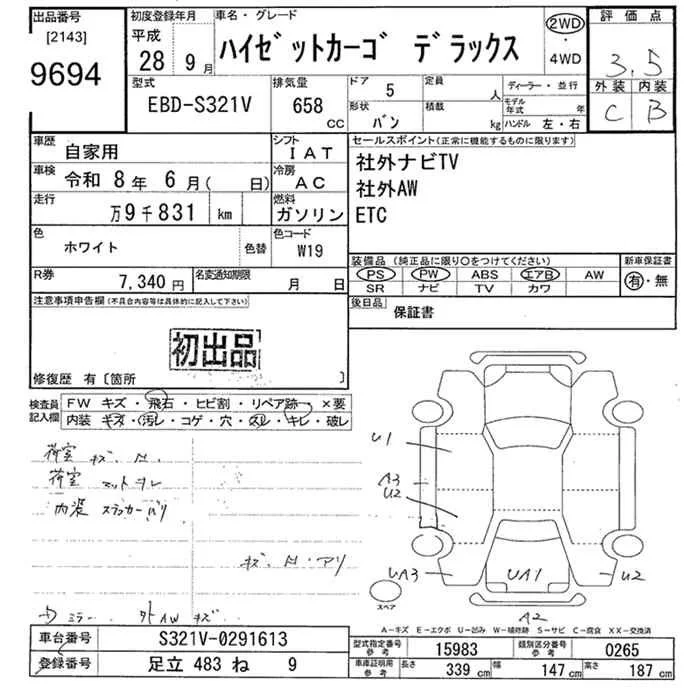 出品番号
[2143]
9694
初度登録年月
平成
28年 9月
車名・グレード
ハイゼットカーゴ デラックス
2WD
・
4WD
評価点
3.5
外装 内装
C B
型式
EBD-S321V
排気量
658
CC
ドア 5
形状 バン
定員 人
積載 kg
ディーラー・並行
モデル年式 年
ハンドル 左・右
車歴 自家用
車検 令和 8年 6月( 日)
走行 万9千831 km
色 ホワイト 色替
シフト IAT
冷房 AC
燃料 ガソリン
色コード W19
セールスポイント(正常に機能するものに限ります)
社外ナビTV
社外AW
ETC
装備品(純正品に限り○をつけてください)
PS PW ABS エアB AW
SR ナビ TV カワ
新車保証書
有・無
R券 7,340円
名変通知期限 月 日
後日品 保証書
注意事項申告欄(不具合内容等は具体的に記入して下さい)
初出品
修復歴 有〔箇所 〕
検査員記入欄
FW キズ・飛石・ヒビ割・リペア跡 ×要
内装・キズ・汚レ・コゲ・穴・スレ・キレ・破レ
荷室 キズ.
荷室 マット
内装
キズ.
ミラー 外AW キズ
U1
A3
U2
UA3
UA1
U2
A2
スペア
A−キズ E−エクボ U−凹み W−補修跡 S−サビ C−腐食 XX−交換済
車台番号 S321V-0291613
登録番号 足立 483 ね 9
型式指定番号 参考 15983
類別区分番号 参考 0265
車庫証明用 参考 長さ 339 cm 幅 147 cm 高さ 187 cm